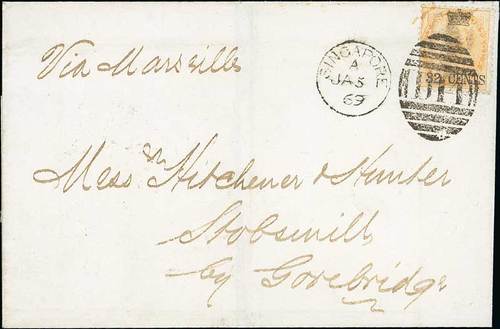 Via Marseilles
SINGAPORE
A
JA 3
69
32 CENTS
Messrs Hitchener & Hunter
Stobsmills
by Gorebridge